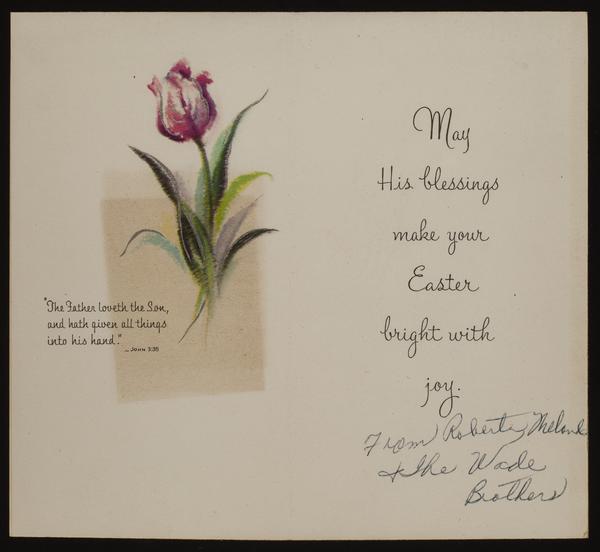 "The Father loveth the Son,
and hath given all things
into his hand."
— JOHN 3:35
May
His blessings
make your
Easter
bright with
joy.
From Roberta
& the Wade
Brothers